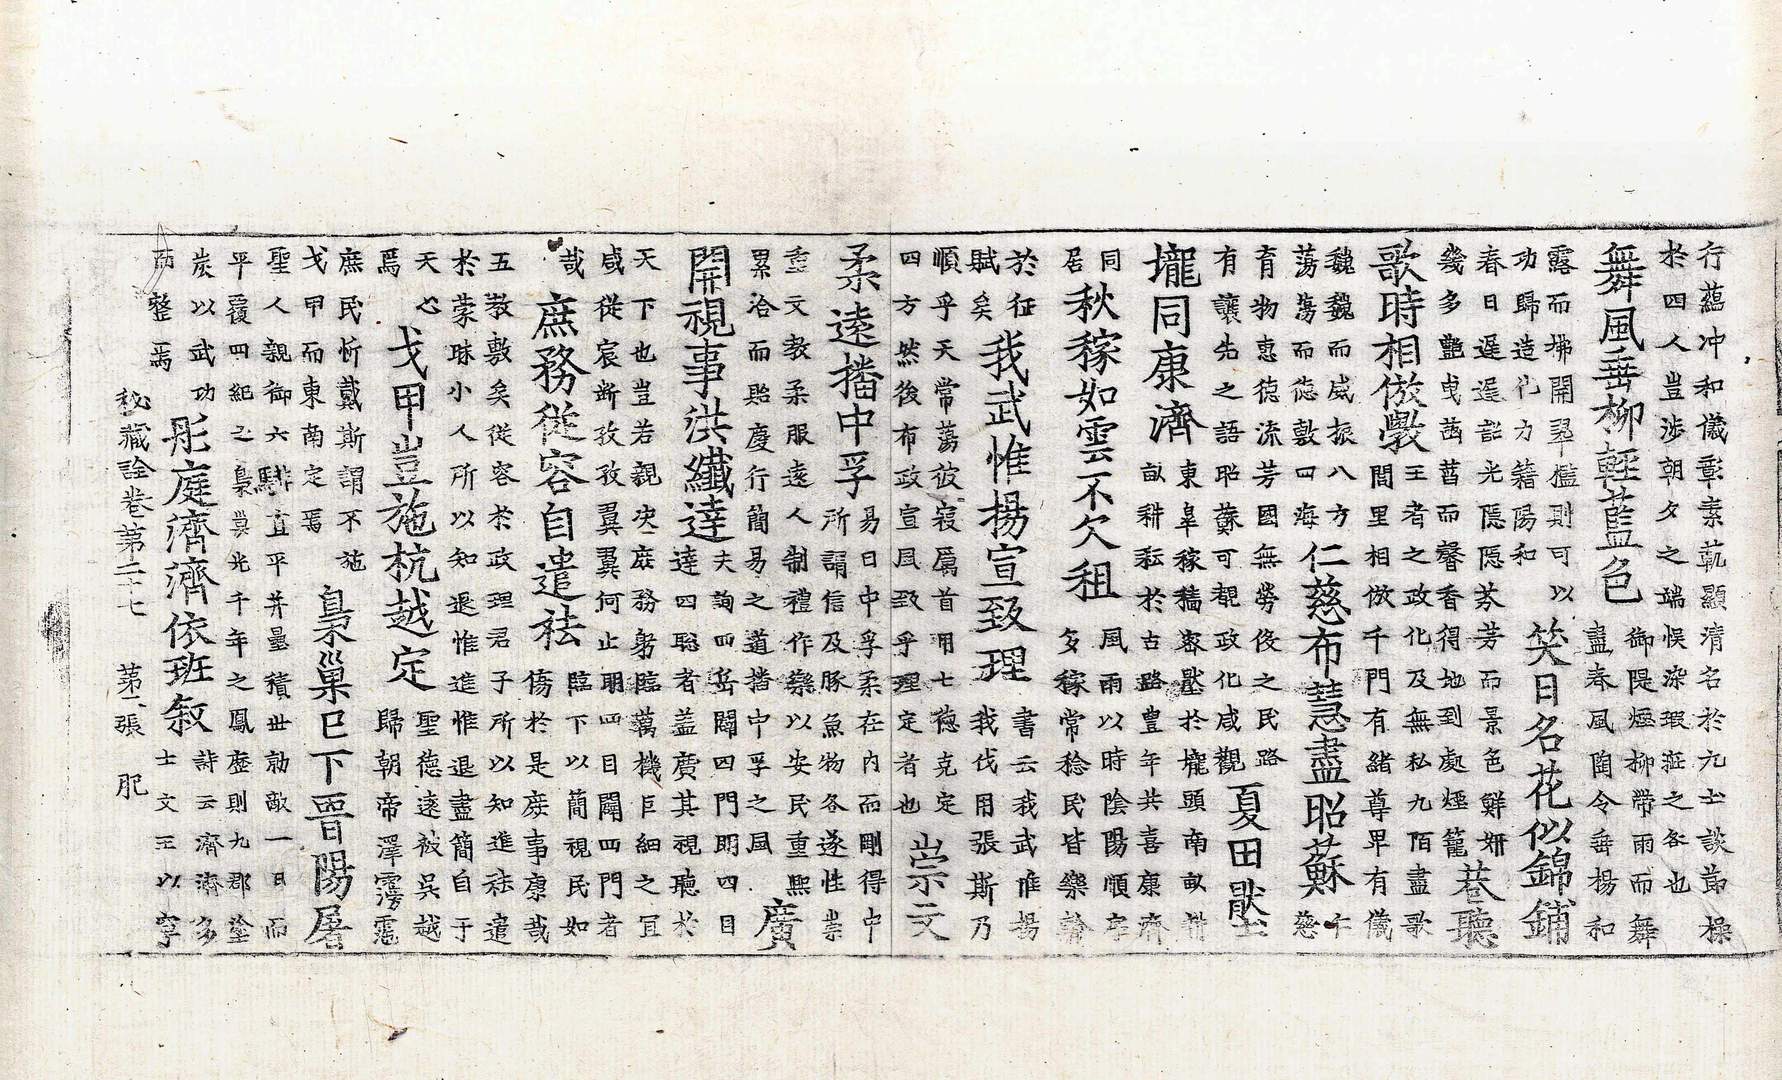 行蘊冲和儀彰素軌顯清名於九土談節操
於四人豈涉朝夕之端悮染瑕疵之咎也
舞風垂柳輕藍色 御隄煙柳帶雨而舞
盡春風陶令垂楊和
露而拂開翠檻則可以
功歸造化力籍陽和 笑日名花似錦鋪
春日遲遲韶光隱隱芬芳而景色鮮妍
幾多艶曳菡萏而馨香得地到處煙籠 巷聽
歌時相倣斅 王者之政化及無私九陌盡歌
閭里相倣千門有緒尊卑有儀
巍巍而威振八方
蕩蕩而德敷四海 仁慈布慧盡昭蘇 仁
慈
育物惠德流芳國無勞役之民路
有讓先之語昭蘇可覩政化咸觀 夏田
壠同康濟 東皐稼穡容於壠頭南畝耕
畝耕耘於古路豐年共喜康濟
同
居 秋稼如雲不欠租 風雨以時陰陽順序
多稼常稔民皆樂輸
於征
賦矣 我武惟揚宣致理 書云我武惟揚
我伐用張斯乃
順乎天常蕩彼寇厲首用七德克定
四方然後布政宣風致乎理定者也 崇文
柔遠播中孚 易曰中孚柔在内而剛得中
所謂信及豚魚物各遂性崇
重文教柔服遠人制禮作樂以安民重熙
累洽而貽慶行簡易之道播中孚之風 廣
開視事洪纖達 夫詢四岳闢四門明四目
達四聰者蓋廣其視聽於
天下也豈若親决庶務躬臨萬機巨細之冝
咸從宸斷孜孜翼翼何止明四目闢四門者
哉 庶務從容自遣袪 臨下以簡視民如
傷於是庶事康哉
五教敷矣從容於政理君子所以知進袪遣
於蒙昧小人所以知退惟進惟退盡簡自于
天心
焉 戈甲豈施杭越定 聖德遠被吳越
歸朝帝澤霶霑
庶民忻戴斯謂不施
戈甲而東南定焉 梟巢巳下晉陽屠
聖人親御六騑直平幷壘積丗勍敵一日而
平覆四紀之梟巢光千年之鳳曆則九郡塗
炭以武功
而整焉 彤庭濟濟依班敘 詩云濟濟多
士文王以寧
秘藏詮卷第二十七 第二張 肥